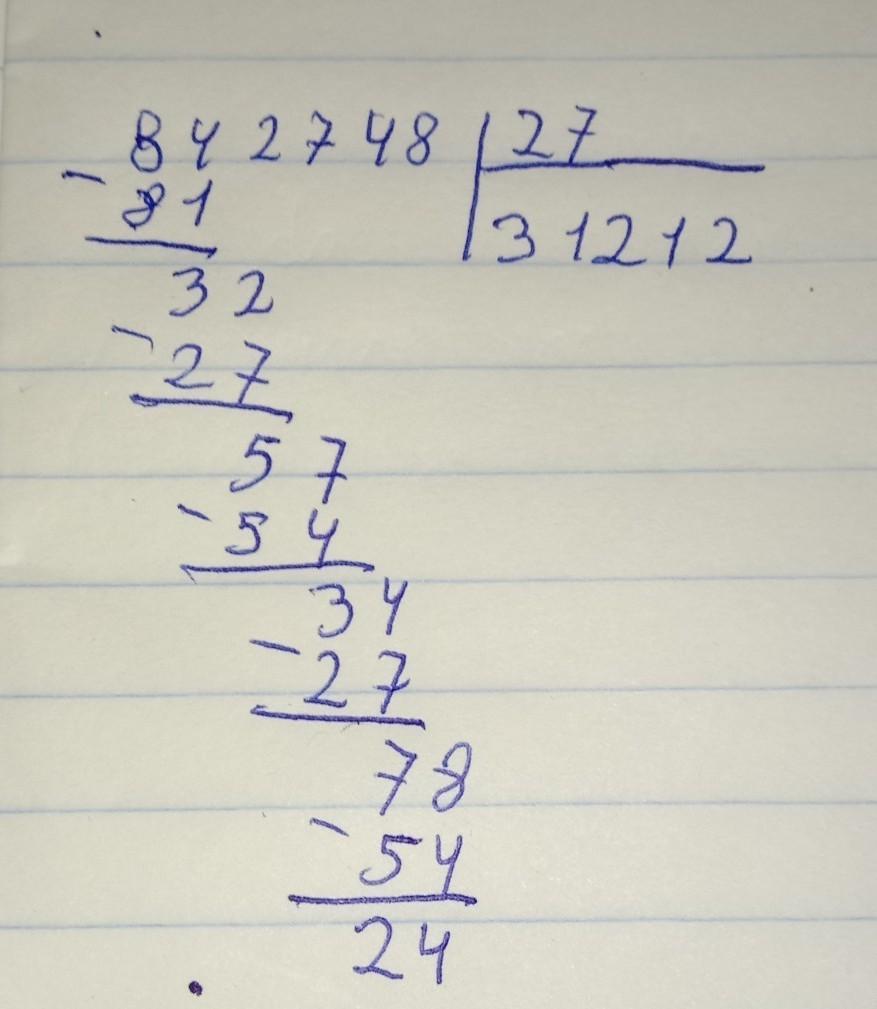 842748 27
- 81 31212
32
- 27
57
- 54
34
- 27
78
- 54
24